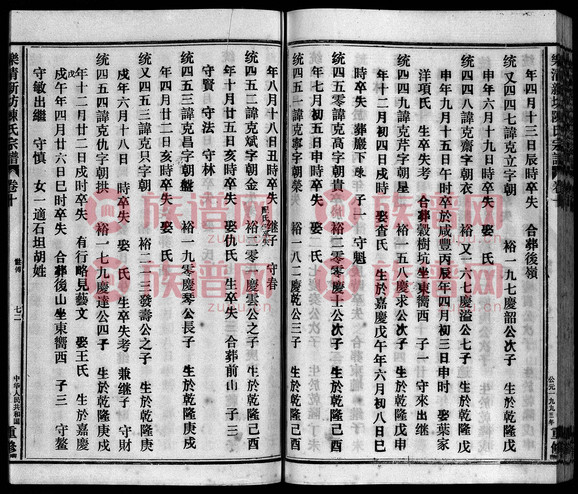 樂清新坊陳氏宗譜 卷十
公元一九九三年 重修
年四月十三日辰時卒失 合葬後嶺
統又四四七諱克立字朝 裕一九七慶韶公次子 生於乾隆戊
申年六月 時卒失 娶 氏 生卒失考
統四四八諱克齋字朝衣 裕又六七慶溢公七子 生於乾隆戊
申年九月十五日午時卒於咸豐丙辰年四月初三日申時 娶葉家
洋項氏 生卒失考 合葬穀樹坑坐東嚮西 子一 守來出繼
統四四九諱克芹字朝星 裕一五八慶求公次子 生於乾隆戊
申年十二月 時卒失 娶查氏 生於嘉慶戊午年六月初八日巳
時卒失 合葬巖下 子一 守魁
統四五零諱克高字朝貴 裕二零零慶十公次子
年七月初五日申時卒失 娶 氏
統四五一諱克寧字朝榮 裕一八二慶欽公三子
年八月十八日丑時卒失 繼子 守春
統四五二諱克斌字朝金 裕二零六慶雲公之子 生於乾隆己酉
年十月廿五日亥時卒失 娶仇氏 生卒失 合葬前山 子三
守賢 守法 守林
統四五三諱克昌字朝盤 裕一九零慶琴公長子 生於乾隆庚戌
年四月廿二日亥時卒失 娶 氏
統又四五三諱克只字朝 裕二二三發壽公之子 生於乾隆庚
戌年六月十八日 時卒失 娶 氏 生卒失考 兼繼子 守財
統四五四諱克仇字朝拱 裕一七九慶達公四子 生於乾隆庚戌
年十二月廿二日戌時卒失 有行略見藝文 娶王氏 生於嘉慶
戊午年四月廿六日巳時卒失 合葬後山坐東嚮西 子三 守鏊
守敏出繼 守慎 女一適石坦胡姓
樂清新坊陳氏宗譜 卷十
七二
中华人民共和国 重修